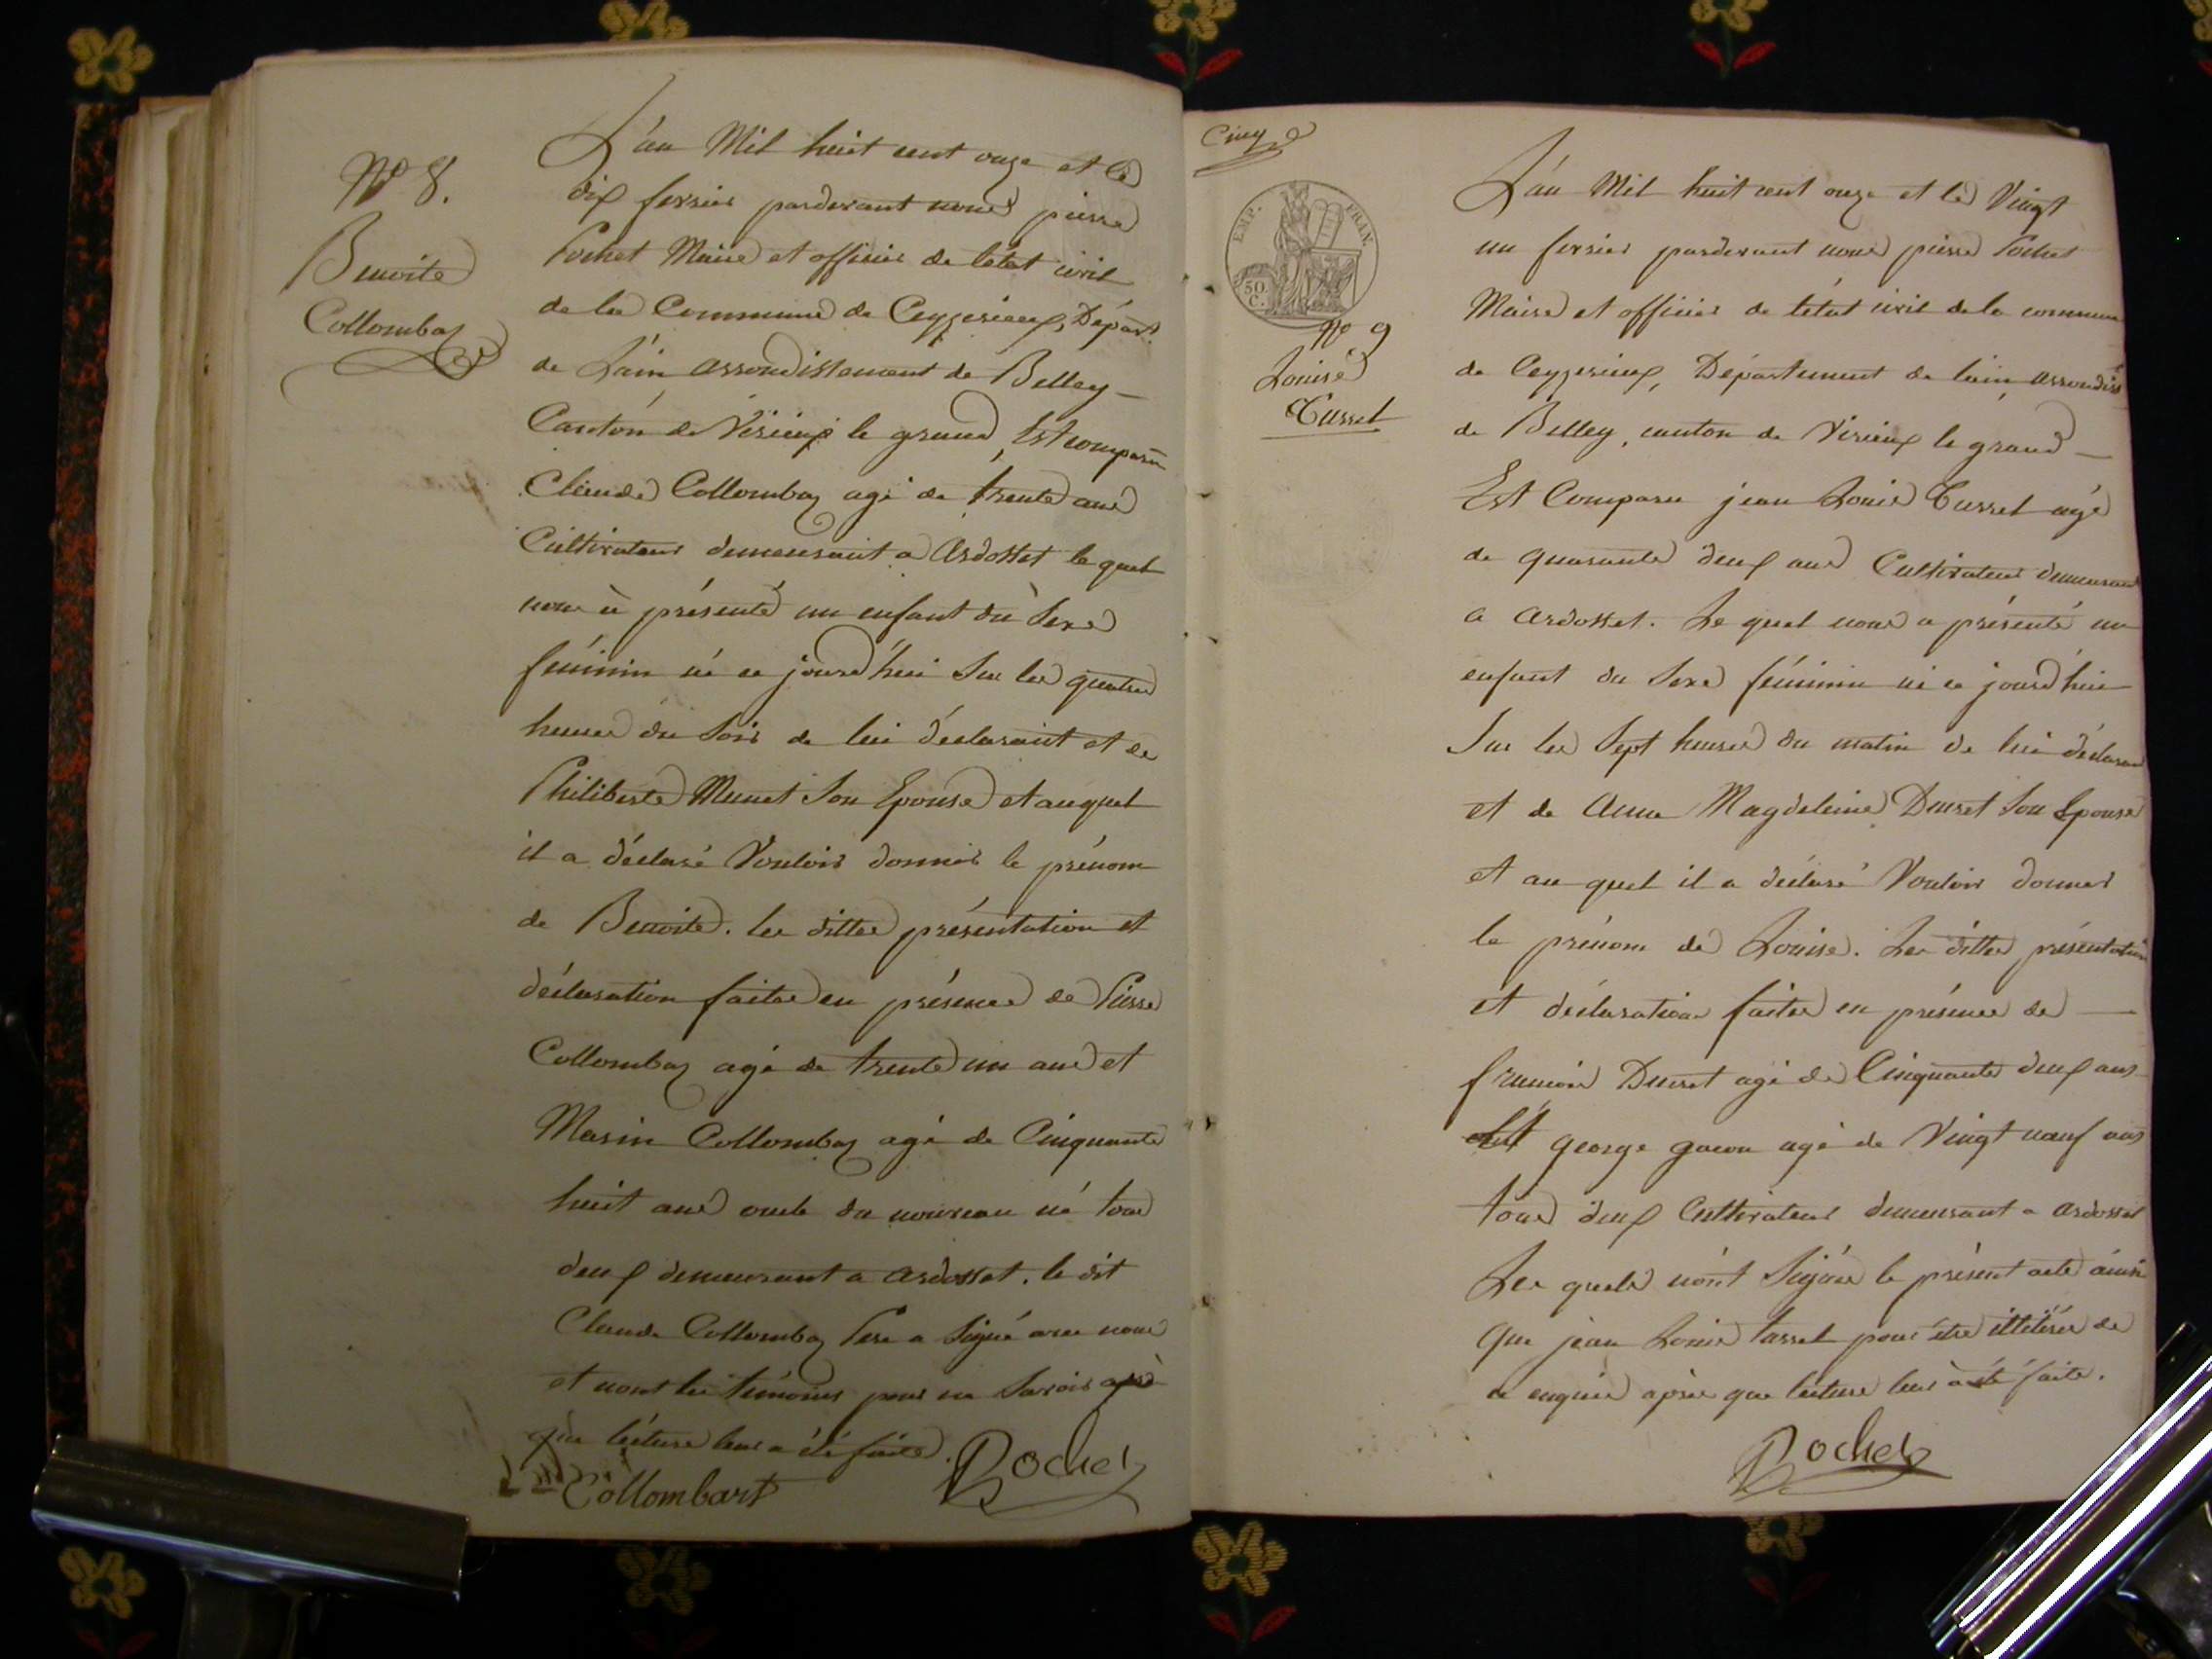 N° 8.
Benoite
Collombaz
L'an Mil huit cent onze et le
dix fevrier pardevant nous pierre
Pochet Maire et officier de l'état civil
de la Commune de Ceyzerieux, Départ.
de L'ain arrondissement de Belley
Canton de Virieux le grand, Est comparu
Claude Collombaz agé de trente ans
Cultivateur demeurant a Ardosset le quel
nous à présenté un enfant du Sexe
féminin né ce jourd'hui Sur les quatre
heures du Soir de lui déclarant et de
Philiberte Munet Son Epouse et auquel
il a déclaré Vouloir donner le prénom
de Benoite. les dittes présentation et
déclaration faites en présence de Pierre
Collombaz agé de trente un ans et
Marin Collombaz agé de Cinquante
huit ans oncle du nouveau né tous
deux demeurant a ardosset. le dit
Claude Collombaz Pere a Signé avec nous
et nont les témoins pour ne Savoir après
que lécture leur a été faite.
Collombart Pochet
Cinq
EMP. FRAN.
50.
C.
N° 9
Louise
Tasset
L'an Mil huit cent onze et le Vingt
un fevrier pardevant nous pierre Pochet
Maire et officier de l'état civil de la commune
de Ceyzerieux, Département de lain, arrondiss
de Belley, canton de Virieux le grand
Est Comparu jean Louis Tasset agé
de quarante deux ans Cultivateur demeurant
a ardosset. Le quel nous a présenté un
enfant du Sexe féminin né ce jourd'hui
Sur les Sept heures du matin de lui déclarant
et de Anne Magdeleine Ducret Son Epouse
et au quel il a déclaré Vouloir donner
le prénom de Louise. Les dittes présentation
et déclaration faites en présence de
francois Ducret agé de Cinquante deux ans
Et george gacon agé de Vingt neuf ans
tous deux Cultivateur demeurant a ardosset
Les quels n'ont Signés le présent acte ainsi
que jean Louis Tasset pour être illitérés de
ce enquis après que lecture leur à été faite.
Pochet